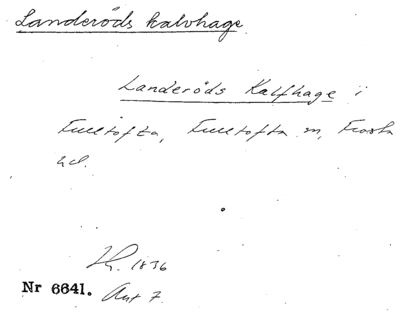 Landeröds kalvhage.
Landeröds Kalfhage i
Fulltofta, Fulltofta sn, Frosta
hd.
1836
Nr 6641. Ant 7.